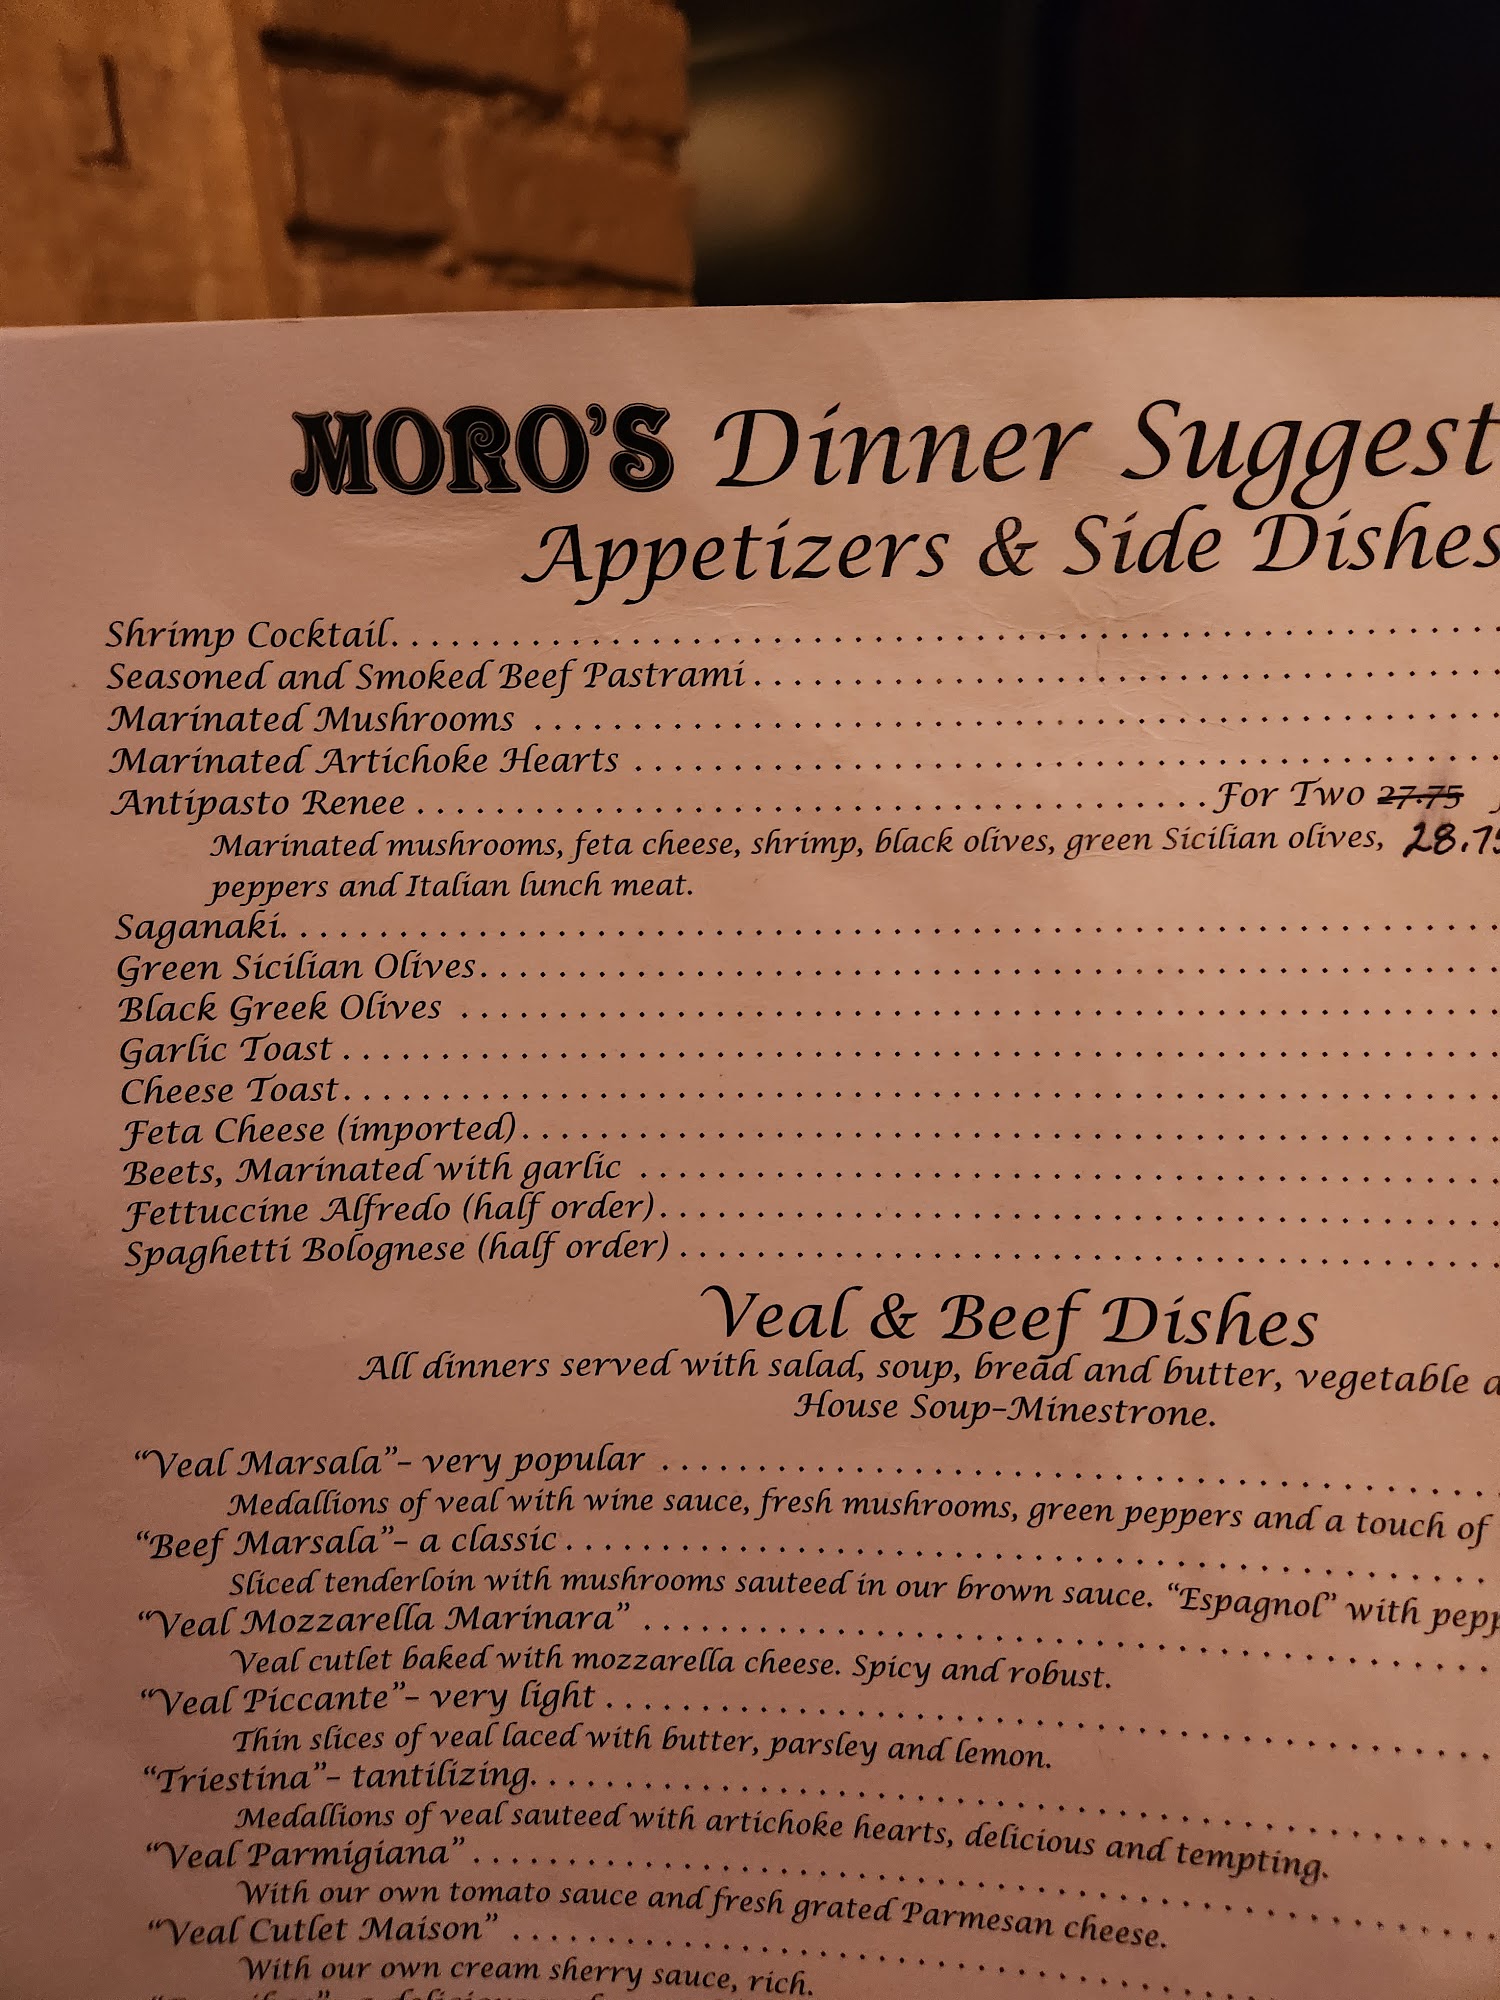 MORO'S Dinner Suggest
Appetizers & Side Dishes
Shrimp Cocktail
Seasoned and Smoked Beef Pastrami
Marinated Mushrooms
Marinated Artichoke Hearts
Antipasto Renee For Two 27.75
Marinated mushrooms, feta cheese, shrimp, black olives, green Sicilian olives, 28.75
peppers and Italian lunch meat.
Saganaki
Green Sicilian Olives
Black Greek Olives
Garlic Toast
Cheese Toast
Feta Cheese (imported)
Beets, Marinated with garlic
Fettuccine Alfredo (half order)
Spaghetti Bolognese (half order)
Veal & Beef Dishes
All dinners served with salad, soup, bread and butter, vegetable
House Soup–Minestrone.
"Veal Marsala"– very popular
Medallions of veal with wine sauce, fresh mushrooms, green peppers and a touch of
"Beef Marsala"– a classic
Sliced tenderloin with mushrooms sauteed in our brown sauce. "Espagnol" with pepp
"Veal Mozzarella Marinara"
Veal cutlet baked with mozzarella cheese. Spicy and robust.
"Veal Piccante"– very light
Thin slices of veal laced with butter, parsley and lemon.
"Triestina"– tantilizing
Medallions of veal sauteed with artichoke hearts, delicious and tempting.
"Veal Parmigiana"
With our own tomato sauce and fresh grated Parmesan cheese.
"Veal Cutlet Maison"
With our own cream sherry sauce, rich.